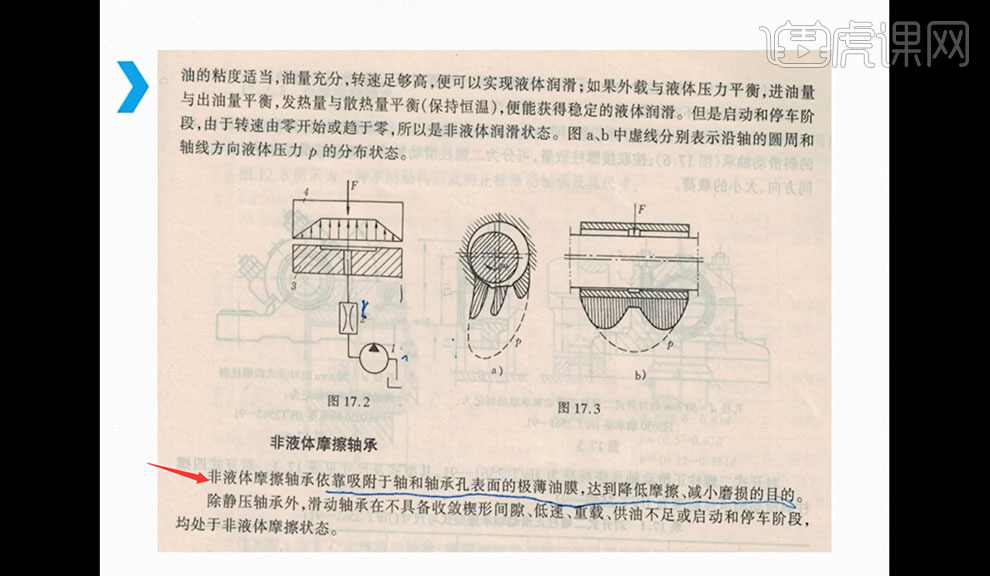 虎课网
油的粘度适当,油量充分,转速足够高,便可以实现液体润滑;如果外载与液体压力平衡,进油量
与出油量平衡,发热量与散热量平衡(保持恒温),便能获得稳定的液体润滑。但是启动和停车阶
段,由于转速由零开始或趋于零,所以是非液体润滑状态。图 a、b 中虚线分别表示沿轴的圆周和
轴线方向液体压力 p 的分布状态。
F
4
3
2
1
图 17.2
p
a)
F
p
b)
图 17.3
非液体摩擦轴承
非液体摩擦轴承依靠吸附于轴和轴承孔表面的极薄油膜,达到降低摩擦、减小磨损的目的。
除静压轴承外,滑动轴承在不具备收敛楔形间隙、低速、重载、供油不足或启动和停车阶段,
均处于非液体摩擦状态。